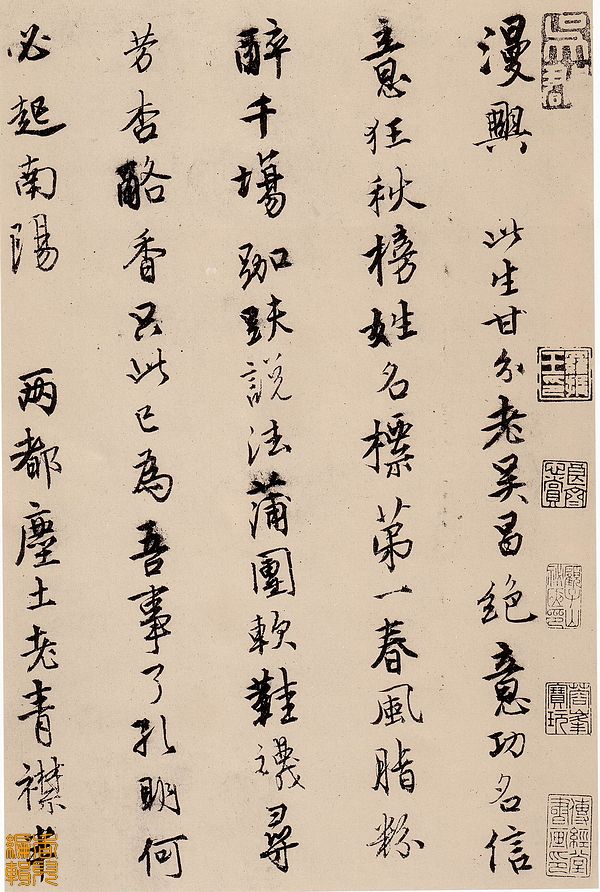 漫興 此生甘分老吴昌絶意功名信
意狂秋榜姓名標第一春風脂粉
醉千場跏趺說法蒲團軟鞋襪尋
芳杏酪香只此已為吾事了孔明何
必起南陽 两都塵土老青襟